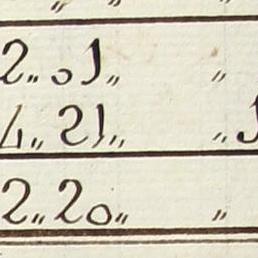 2„01„ „
4„21„ „1
2„20„ „